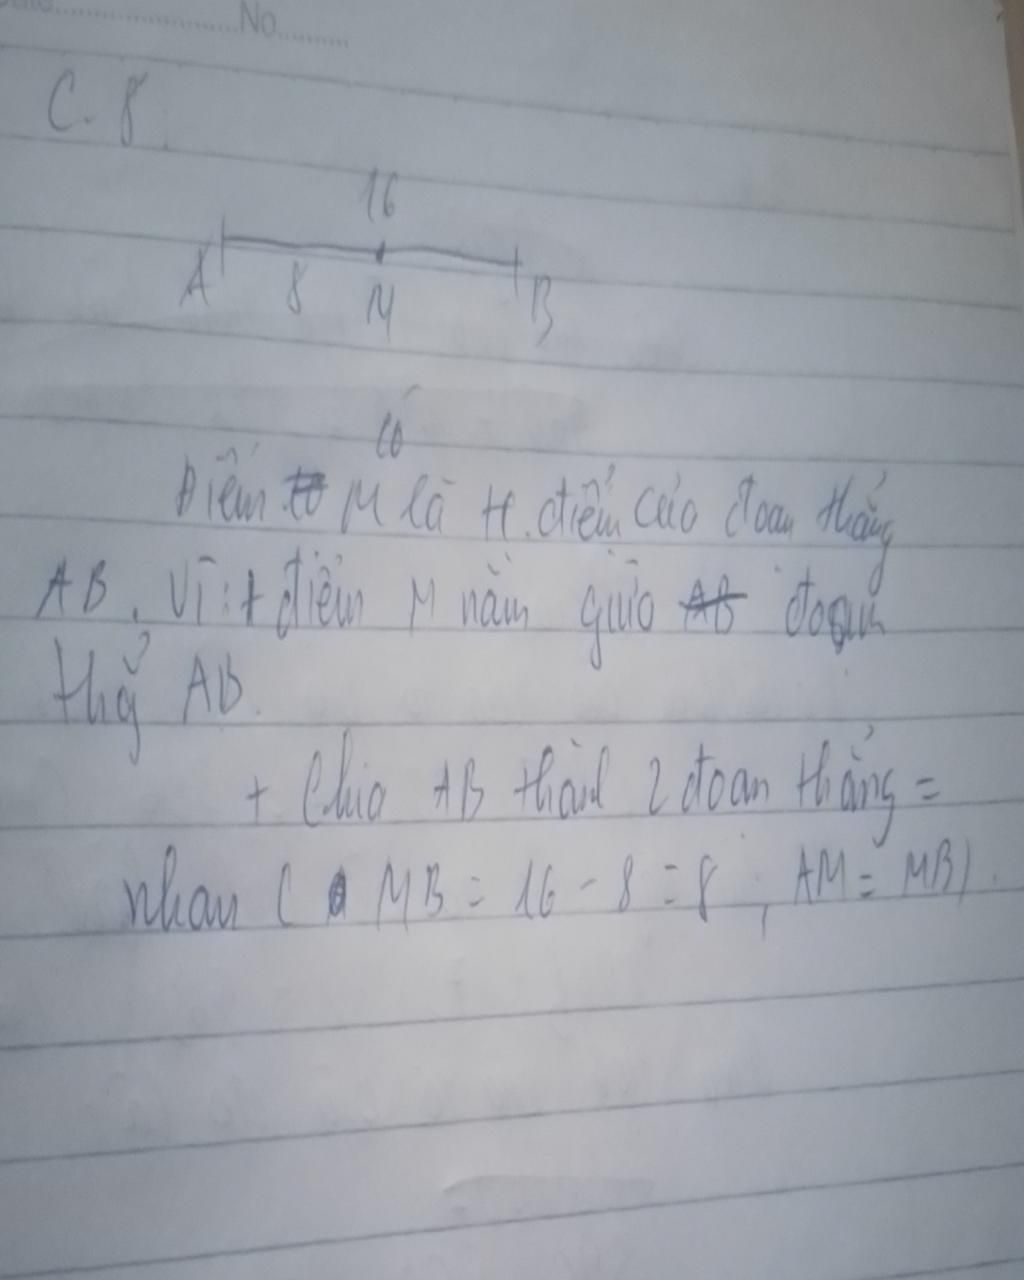 No
C. 8
16
A 8 M B
có
Điểm M là tr.điểm của đoan thẳng
AB. Vì: + điểm M nằm giữa AB đoạn
thg̉ AB.
+ Chia AB thành 2 đoan thẳng =
nhau ( MB = 16 - 8 = 8 , AM = MB)